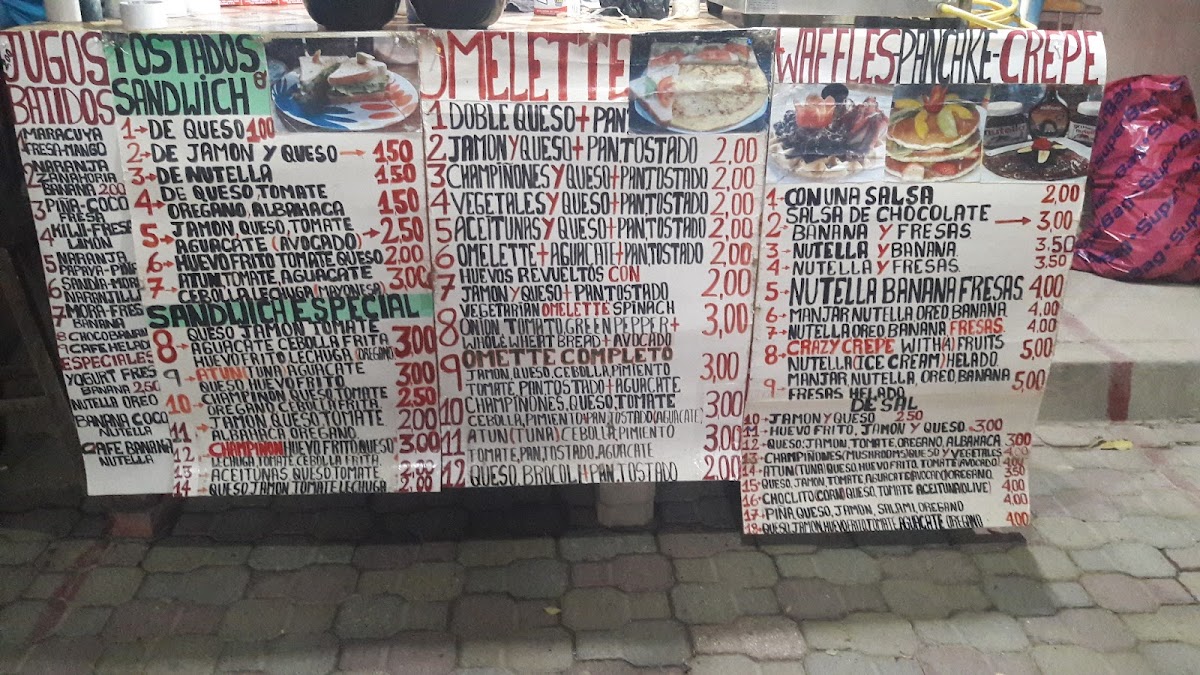 JUGOS
BATIDOS
MARACUYA
FRESA-MANGO
NARANJA
ZANAHORIA
BANANA 200
PIÑA-COCO
FRESA
KIWI-FRESA
LIMON
NARANJA
PAPAYA-PIÑA
SANDIA-MORA
NARANJILLA
MORA-FRESA
BANANA
CHOCOBANANA
CAFE HELADO
ESPECIALES
YOGURT FRES
BANANA 250
NUTELLA OREO
BANANA COCO
NUTELLA
CAFE BANANA
NUTELLA
TOSTADOS
SANDWICH
1→ DE QUESO 100
2→ DE JAMON Y QUESO → 150
3→ DE NUTELLA 150
4→ DE QUESO, TOMATE
OREGANO, ALBAHACA 150
5→ JAMON, QUESO, TOMATE
AGUACATE (AVOCADO) → 2,50
6→ HUEVO FRITO TOMATE QUESO 2,00
7→ ATUN, TOMATE, AGUACATE
CEBOLLA LECHUGA (MAYONESA) 3,00
SANDWICH ESPECIAL
8→ QUESO JAMON TOMATE
AGUACATE CEBOLLA FRITA
HUEVO FRITO LECHUGA (OREGANO) 3,00
9→ ATUN (TUNA) AGUACATE
QUESO, HUEVO FRITO 3,00
10→ CHAMPIÑON QUESO, TOMATE
OREGANO CEBOLLA FRITO 2,50
11→ JAMON QUESO TOMATE
ALBAHACA OREGANO 200
12→ CHAMPIÑON HUEVO FRITO, QUESO
LECHUGA TOMATE CEBOLLA FRITA 3,00
13→ ACEITUNAS QUESO TOMATE
14→ QUESO JAMON TOMATE LECHUGA
OMELETTE
1 DOBLE QUESO + PAN
2 JAMON Y QUESO + PAN.TOSTADO 2,00
3 CHAMPIÑONES Y QUESO + PAN.TOSTADO 2,00
4 VEGETALES Y QUESO + PAN.TOSTADO 2,00
5 ACEITUNAS Y QUESO + PAN.TOSTADO 2,00
6 OMELETTE + AGUACATE + PAN.TOSTADO 2,00
7 HUEVOS REVUELTOS CON
JAMON Y QUESO + PAN TOSTADO 2,00
8 VEGETARIAN OMELETTE SPINACH
ONION TOMATO, GREEN PEPPER +
WHOLE WHEAT BREAD + AVOCADO 3,00
9 OMETTE COMPLETO
JAMON, QUESO, CEBOLLA, PIMIENTO
TOMATE, PAN.TOSTADO + AGUACATE 3,00
10 CHAMPIÑONES, QUESO, TOMATE
CEBOLLA, PIMIENTO + PAN.TOSTADO (AGUACATE) 3,00
11 ATUN (TUNA) CEBOLLA, PIMIENTO
TOMATE, PAN.TOSTADO, AGUACATE 3,00
12 QUESO, BROCOLI + PAN.TOSTADO 2,00
WAFFLES PANCAKE - CREPE
1- CON UNA SALSA 2,00
2- SALSA DE CHOCOLATE
BANANA Y FRESAS → 3,00
3→ NUTELLA Y BANANA 3,50
4→ NUTELLA Y FRESAS 3,50
5→ NUTELLA BANANA FRESAS 4,00
6→ MANJAR NUTELLA OREO BANANA 4,00
7→ NUTELLA OREO BANANA FRESAS 4,00
8→ CRAZY CREPE WITH(A) FRUITS
NUTELLA (ICE CREAM) HELADO 5,00
9→ MANJAR, NUTELLA, OREO, BANANA
FRESAS HELADA 5,00
DE SAL
10→ JAMON Y QUESO 2,50
11→ HUEVO FRITO, JAMON Y QUESO → 3,00
12→ QUESO, JAMON, TOMATE, OREGANO, ALBAHACA 3,00
13→ CHAMPIÑONES (MUSHROOMS) QUESO Y VEGETALES
14→ ATUN (TUNA) QUESO, HUEVO FRITO, TOMATE (AVOCADO)
15→ QUESO, JAMON, TOMATE AGUACATE (AVOCADO) OREGANO 4,00
16→ CHOCLITO (CORN) QUESO, TOMATE ACEITUNA (OLIVE) 4,00
17→ PIÑA, QUESO, JAMON, SALAMI, OREGANO
18→ QUESO, JAMON, HUEVO FRITO, TOMATE AGUACATE OREGANO 4,00